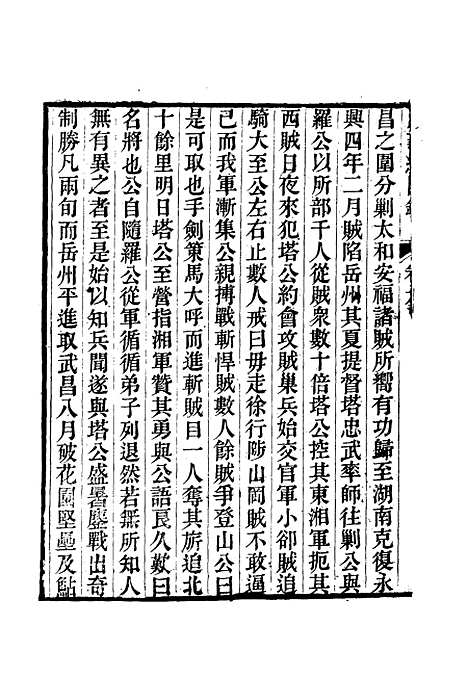 昌之圍分剿太和安福諸賊所嚮有功歸至湖南克復永
興四年二月賊陷岳州其夏提督塔忠武率師往剿公與
羅公以所部千人從賊衆數十倍塔公控其東湘軍扼其
西賊日夜來犯塔公約會攻賊巢兵始交官軍小卻賊追
騎大至公左右止數人戒曰毋走徐行陟山岡賊不敢逼
已而我軍漸集公親搏戰斬悍賊數人餘賊爭登山公曰
是可取也手劍策馬大呼而進斬賊目一人奪其旂追北
十餘里明日塔公至營指湘軍贊其勇與公語良久歎曰
名將也公自隨羅公從軍循循弟子列退然若無所知人
無有異之者至是始以知兵聞遂與塔公盛暑鏖戰出奇
制勝凡兩旬而岳州平進取武昌八月破花園堅壘及鮎